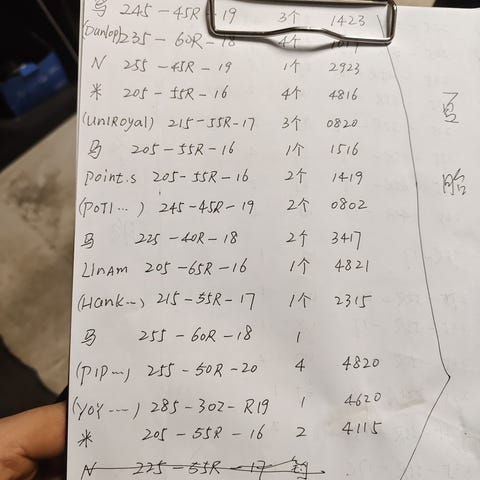 马 245-45R-19 3个 1423
(Dunlop) 235-60R-18 4个
N 255-45R-19 1个 2923
米 205-55R-16 4个 4816
(UniRoyal) 215-55R-17 3个 0820
马 205-55R-16 1个 1516
Point.s 205-55R-16 2个 1419
(POTI...) 245-45R-19 2个 0802
马 225-40R-18 2个 3417
LinAm 205-65R-16 1个 4821
(Hank...) 215-55R-17 1个 2315
马 255-60R-18 1
(PIP...) 255-50R-20 4 4820
(YOY....) 285-302-R19 1 4620
米 205-55R-16 2 4115
N 225-55R-17
夏
胎